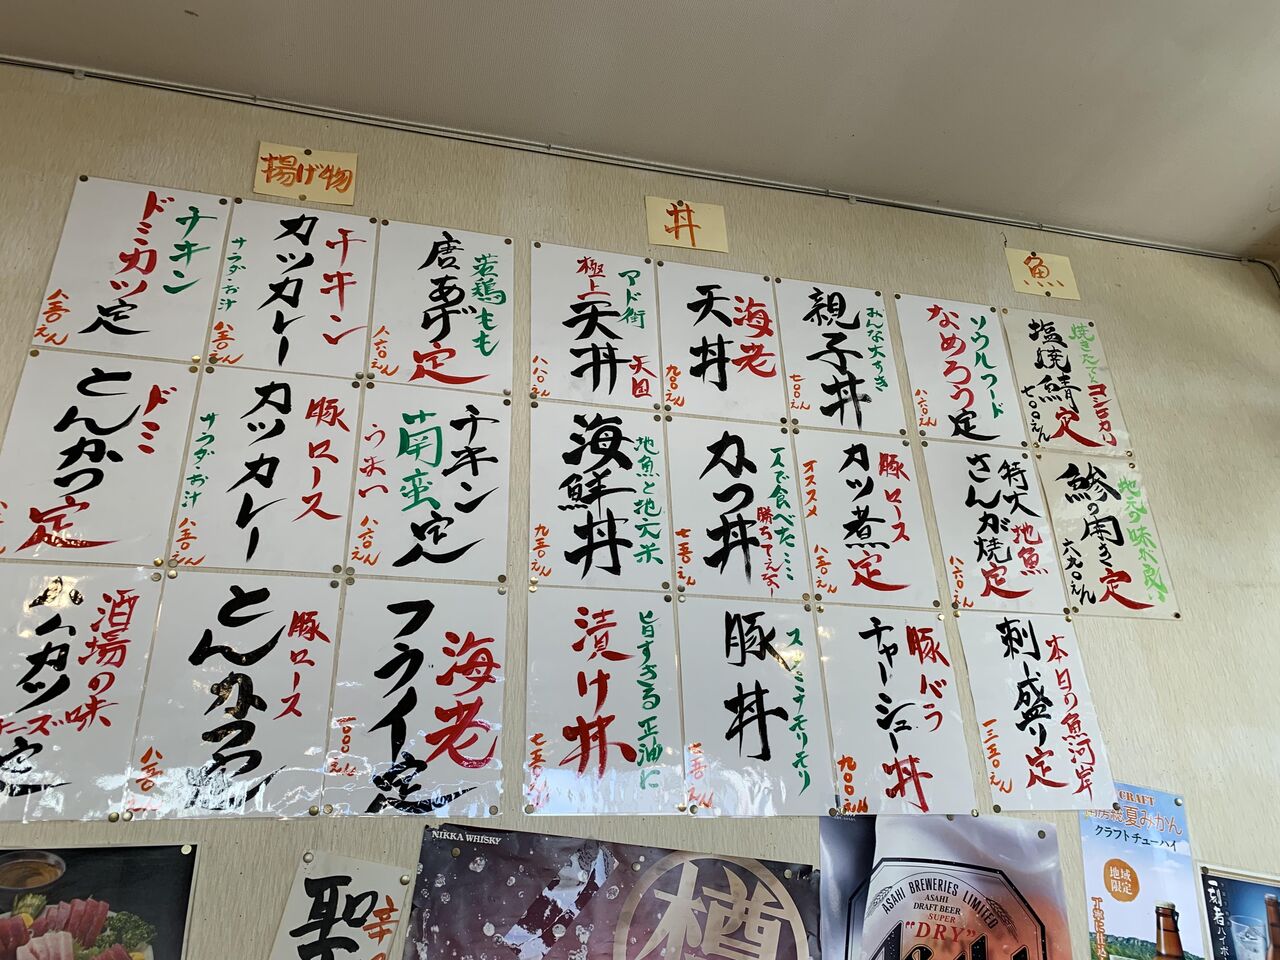 揚げ物
丼
魚
チキン
ドミカツ定
八五〇えん
チキン
カツカレー
サラダ・お汁
八五〇えん
若鶏もも
唐あげ定
八六〇えん
アド街
極上天丼
天国
海老
天丼
九〇〇えん
みんな大すき
親子丼
七〇〇えん
ソウルフード
なめろう定
八六〇えん
焼きたて
コシヒカリ
塩焼鯖定
七〇〇えん
ドミ
とんかつ定
豚ロース
カツカレー
サラダ・お汁
八五〇えん
チキン
南蛮定
うまい
八六〇えん
地魚と地元米
海鮮丼
九五〇えん
勝ちてえな
かつ丼
七五〇えん
豚ロース
カツ煮定
オススメ
八五〇えん
特大
地魚
さんが焼定
八六〇えん
地元の味が良い
鯵の開き定
六九〇えん
酒場の味
ハムカツ
チーズ
定
豚ロース
とんかつ定
八五〇
海老
フライ定
一〇〇〇えん
旨すぎる正油に
漬け丼
七五〇えん
スタミナモリモリ
豚丼
七五〇えん
豚バラ
チャーシュー丼
九〇〇えん
本日の魚河岸
刺し盛り定
一三五〇えん
NIKKA WHISKY
樽
ASAHI BREWERIES LIMITED
ASAHI
DRAFT BEER
SUPER
"DRY"
CRAFT
南房総夏みかん
クラフトチューハイ
地域
限定
丁寧に仕込